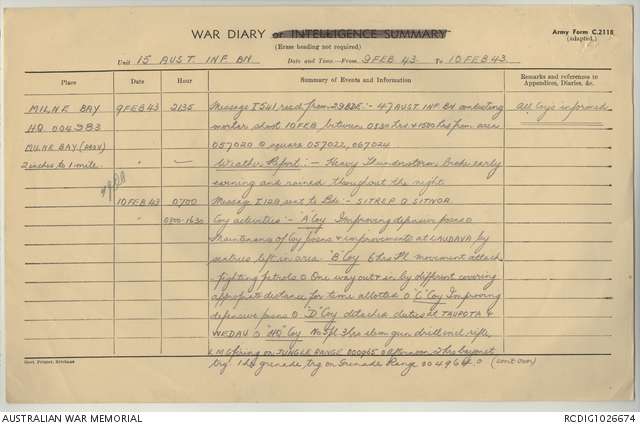 WAR DIARY or INTELLIGENCE SUMMARY
Army Form C.2118
(adapted.)
(Erase heading not required)
Unit 15 AUST INF BN Date and Time—From 9 FEB 43 To 10 FEB 43
Place Date Hour Summary of Events and Information Remarks and references to Appendices, Diaries, &c.
MILNE BAY 9 FEB 43 2135 Message I541 recd from 29 BDE :- 47 AUST INF BN conducting All Coy's informed
HQ 004983 mortar shoot 10 FEB between 0830 hrs & 1500 hrs from area
MILNE BAY 057020 square 057022, 067024
2 inches to 1 mile. " — Weather Report :- Heavy thunderstorm broke early
evening and rained throughout the night
10 FEB 43 0700 Message sent to Bde :- SITREP
" 0800-1630 Coy activities :- "A" Coy Improving defensive posns
Maintenance of Coy posns & improvements at LAUDAVA by
sentries left in area "B" Coy 6 hrs Pl movement attack
fighting patrols One way out & in by different covering
appropriate distance for time allotted "C" Coy Improving
defensive posns "D" Coy detached duties at TAUPOTA &
WEDAU "HQ" Coy 3 hrs sten gun drill incl rifle,
LMG firing on JUNGLE RANGE afternoon 2 hrs bayonet
trg 1 hr grenade trg on Grenade Range 004964 (cont over)
Govt. Printer, Brisbane
AUSTRALIAN WAR MEMORIAL
RCDIG1026674